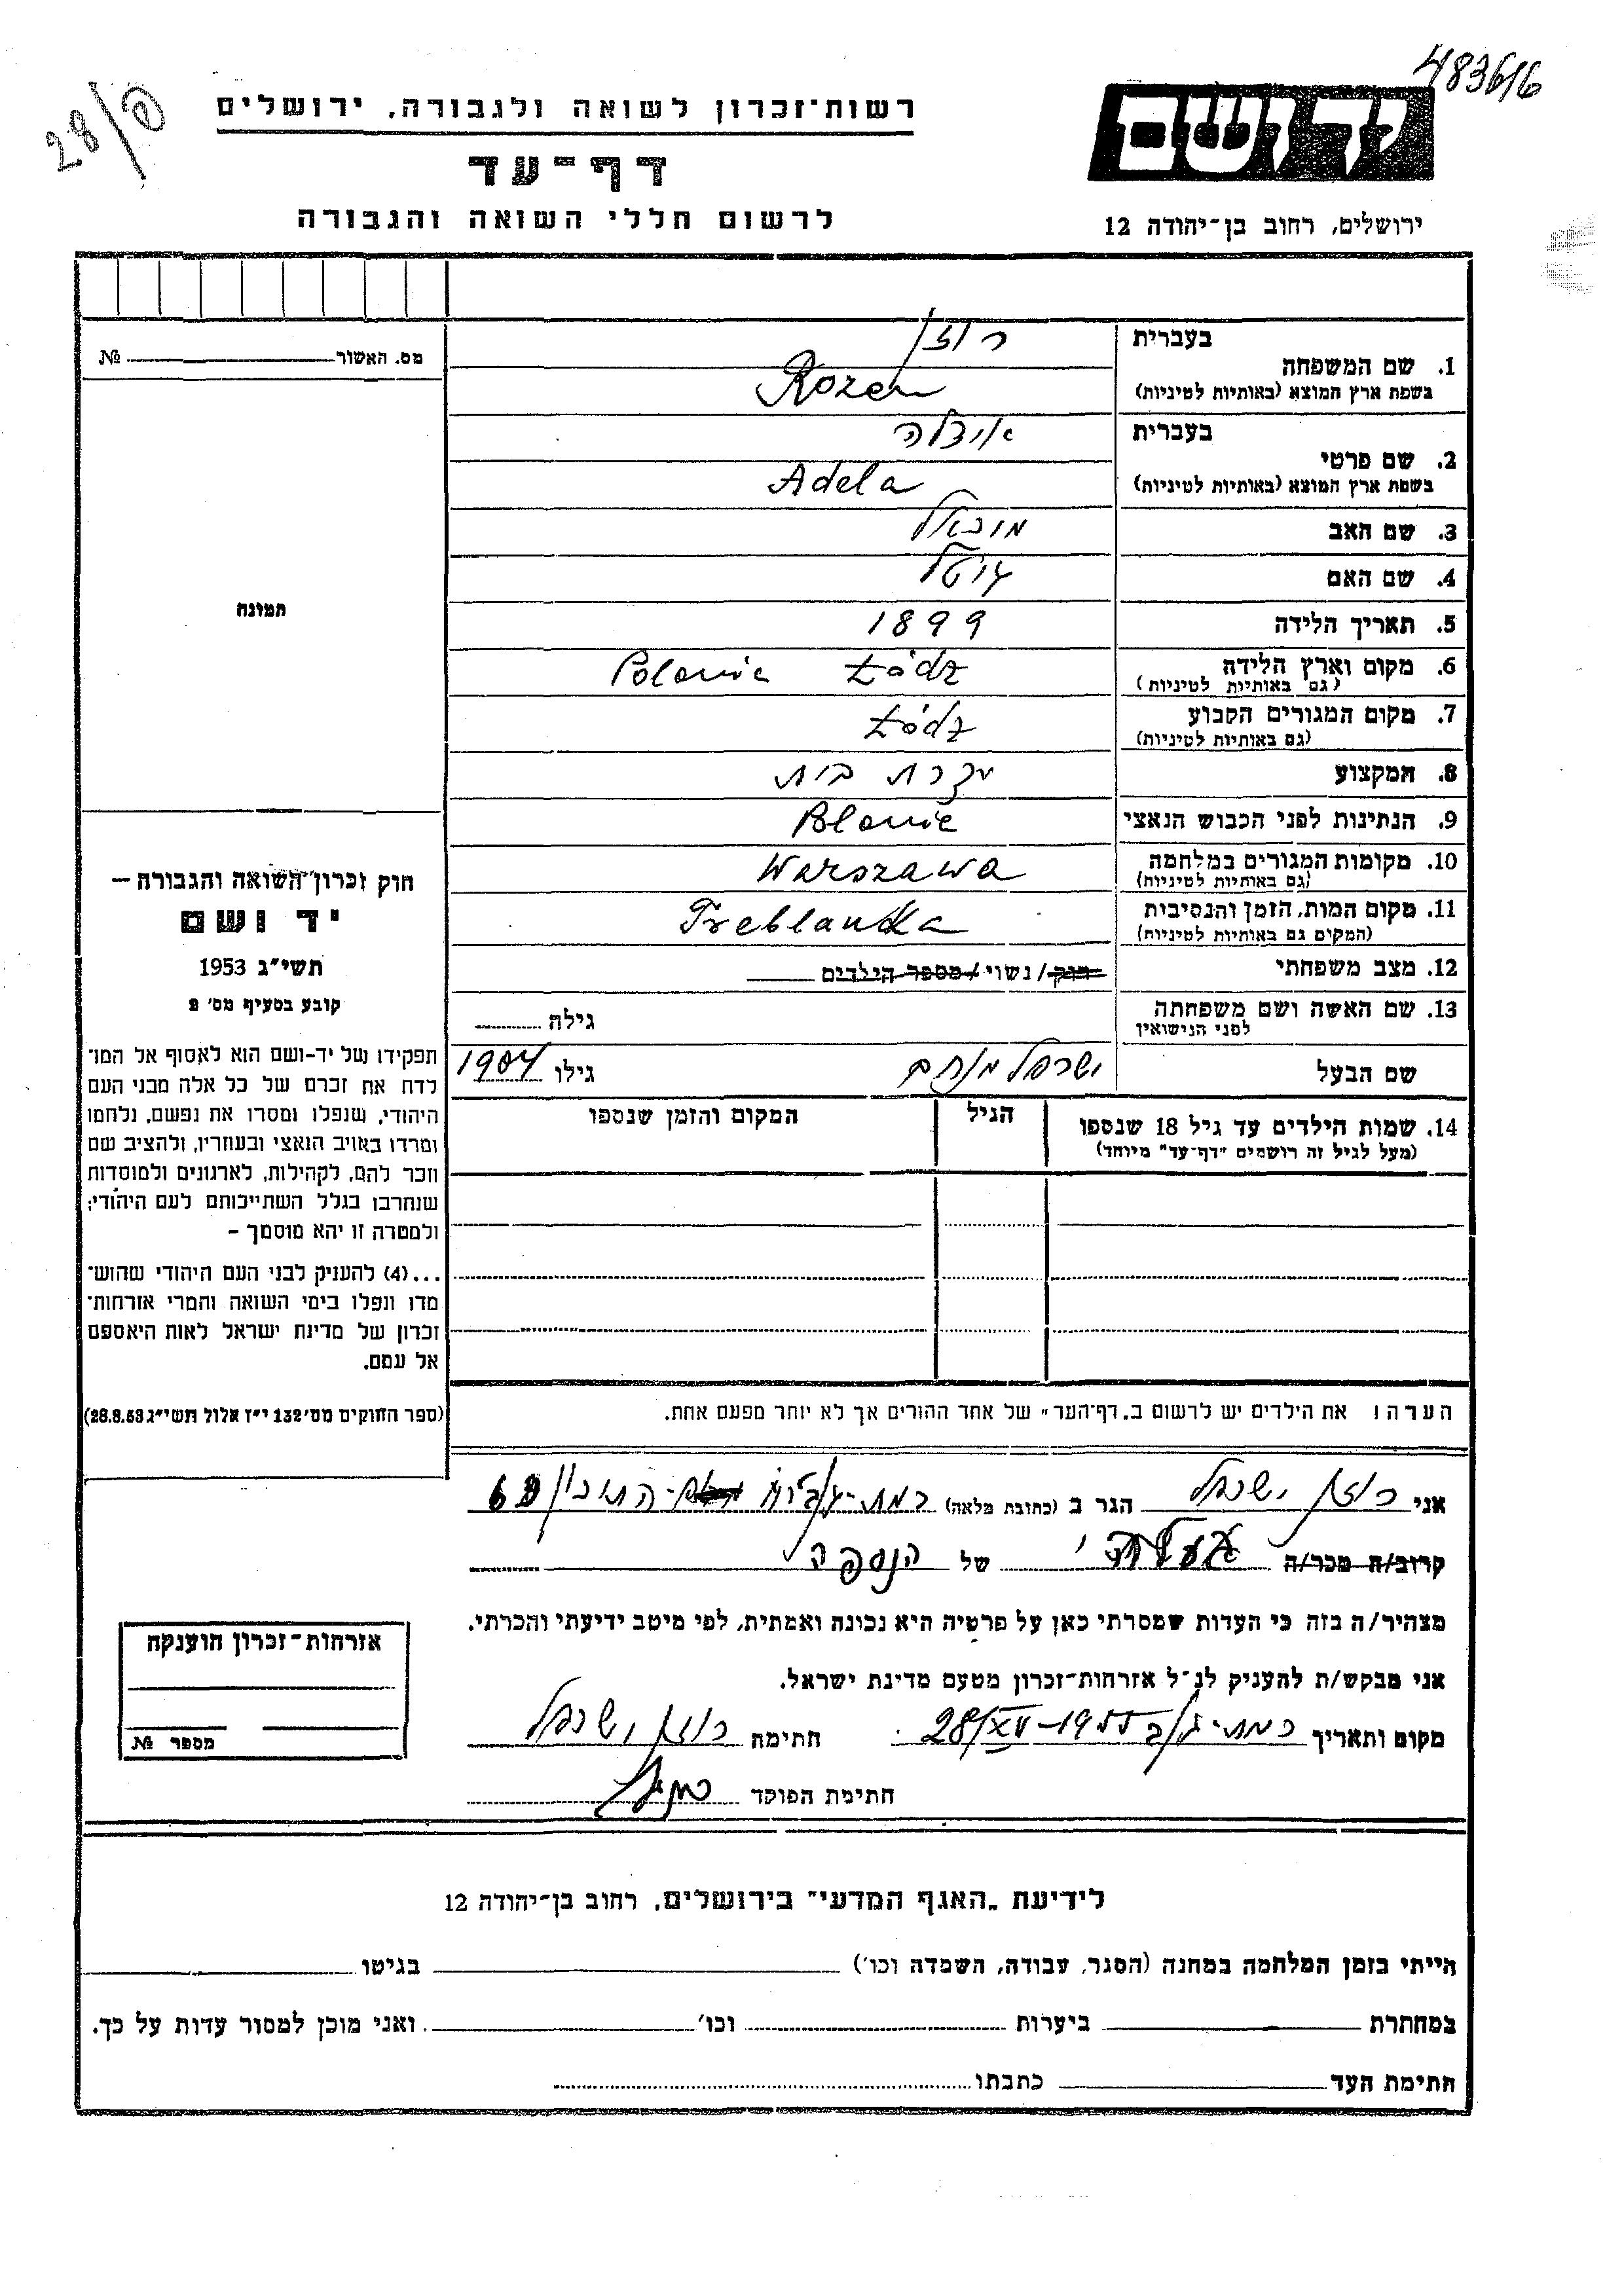 483616
28/פ
יד ושם
רשות־זכרון לשואה ולגבורה, ירושלים
דף־עד
לרשום חללי השואה והגבורה
ירושלים, רחוב בן־יהודה 12
1. שם המשפחה
בעברית
רוזן
בשפת ארץ המוצא (באותיות לטיניות)
Rozen
2. שם פרטי
בעברית
בשפת ארץ המוצא (באותיות לטיניות)
Adela
3. שם האב
4. שם האם
5. תאריך הלידה
1899
6. מקום וארץ הלידה
(גם באותיות לטיניות)
Łódz Polonie
7. מקום המגורים הקבוע
(גם באותיות לטיניות)
Łódz
8. המקצוע
עקרת בית
9. הנתינות לפני הכבוש הנאצי
Polonie
10. מקומות המגורים במלחמה
(גם באותיות לטיניות)
Warszawa
11. מקום המות, הזמן והנסיבות
(המקום גם באותיות לטיניות)
Treblanka
12. מצב משפחתי
רוק/נשוי/מספר הילדים
13. שם האשה ושם משפחתה
לפני הנישואין
גילה
שם הבעל
ישראל מנחם
גילו 1904
14. שמות הילדים עד גיל 18 שנספו
(מעל לגיל זה רושמים "דף־עד" מיוחד)
הגיל
המקום והזמן שנספו
הערה: את הילדים יש לרשום ב„דף־העד" של אחד ההורים אך לא יותר מפעם אחת.
מס. האשור №
תמונה
חוק זכרון השואה והגבורה —
יד ושם
תשי"ג 1953
קובע בסעיף מס' 2
תפקידו של יד-ושם הוא לאסוף אל המו־
לדת את זכרם של כל אלה מבני העם
היהודי, שנפלו ומסרו את נפשם, נלחמו
ומרדו באויב הנאצי ובעוזריו, ולהציב שם
וזכר להם, לקהילות, לארגונים ולמוסדות
שנחרבו בגלל השתייכותם לעם היהודי;
ולמטרה זו יהא מוסמך —
...(4) להעניק לבני העם היהודי שהוש־
מדו ונפלו בימי השואה והמרי אזרחות־
זכרון של מדינת ישראל לאות היאספם
אל עמם.
(ספר החוקים מס' 132 י"ז אלול תשי"ג 28.8.53)
אני רוזן ישראל הגר ב (כתובת מלאה) רמת-גן התיכון
קרוב/ה מכר/ה של הנספה
מצהיר/ה בזה כי העדות שמסרתי כאן על פרטיה היא נכונה ואמתית, לפי מיטב ידיעתי והכרתי.
אני מבקש/ת להעניק לנ"ל אזרחות־זכרון מטעם מדינת ישראל.
מקום ותאריך חתימה רוזן ישראל
חתימת הפוקד
אזרחות־זכרון הוענקה
מספר №
לידיעת „האגף המדעי" בירושלים, רחוב בן־יהודה 12
הייתי בזמן המלחמה במחנה (הסגר, עבודה, השמדה וכו') בגיטו
במחתרת ביערות וכו' ואני מוכן למסור עדות על כך.
חתימת העד כתבתו